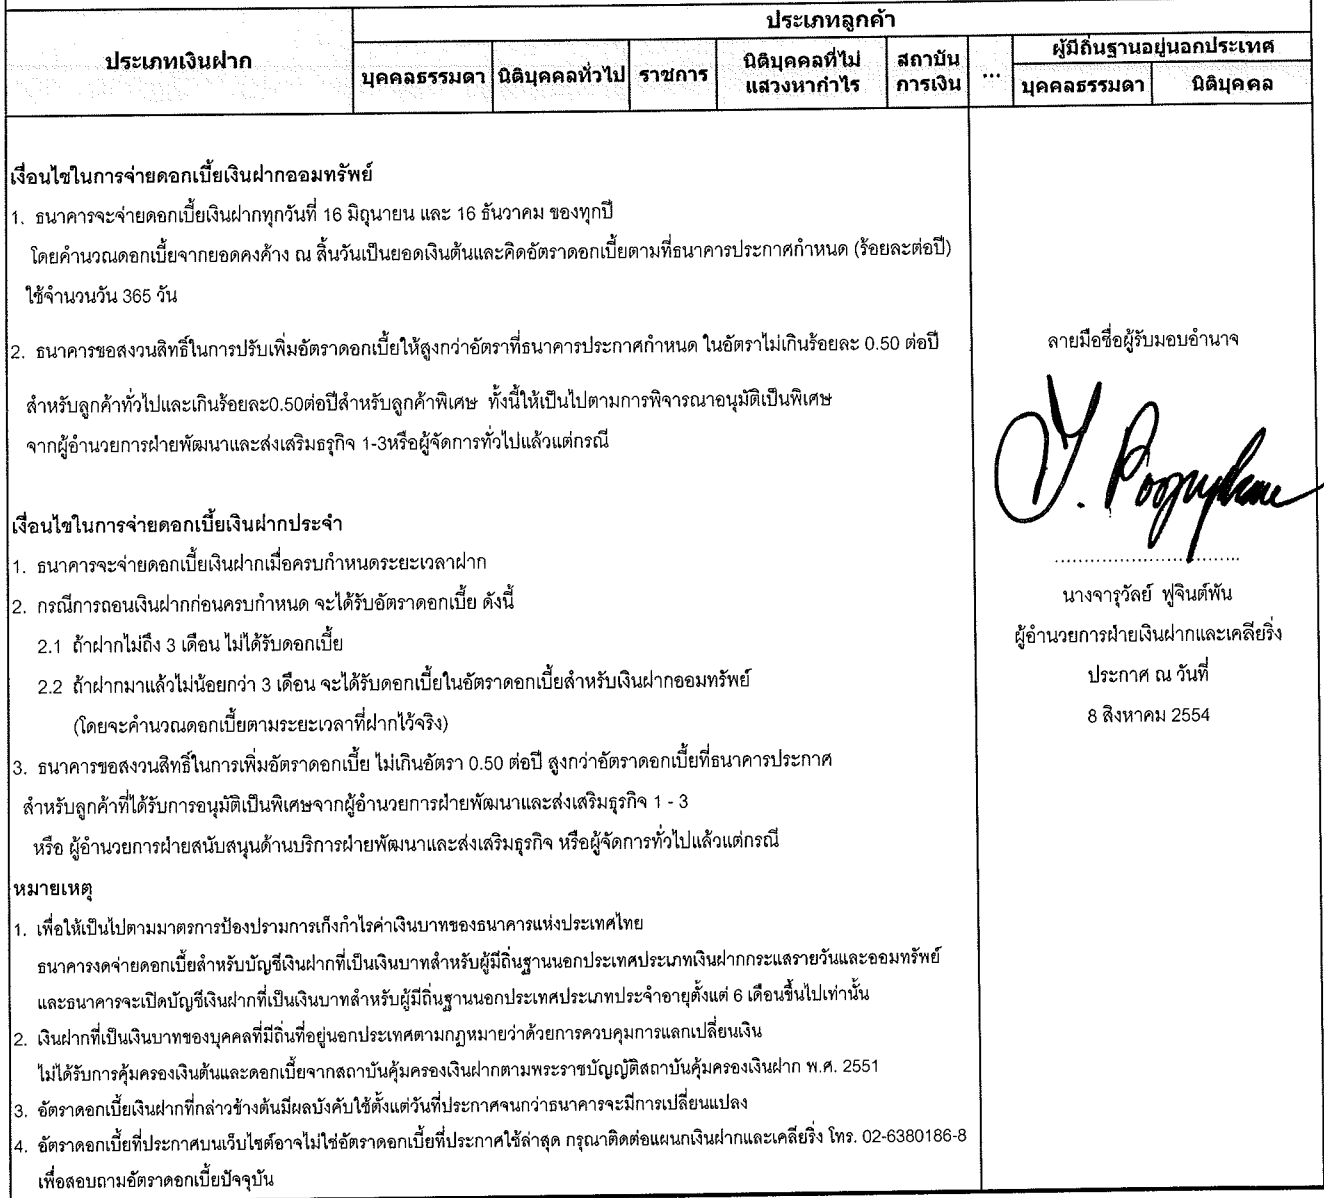 ประเภทลูกค้า
ประเภทเงินฝาก
บุคคลธรรมดา นิติบุคคลทั่วไป ราชการ นิติบุคคลที่ไม่แสวงหากำไร สถาบันการเงิน ... ผู้มีถิ่นฐานอยู่นอกประเทศ
บุคคลธรรมดา นิติบุคคล
เงื่อนไขในการจ่ายดอกเบี้ยเงินฝากออมทรัพย์
1. ธนาคารจะจ่ายดอกเบี้ยเงินฝากทุกวันที่ 16 มิถุนายน และ 16 ธันวาคม ของทุกปี
โดยคำนวณดอกเบี้ยจากยอดคงค้าง ณ สิ้นวันเป็นยอดเงินต้นและคิดอัตราดอกเบี้ยตามที่ธนาคารประกาศกำหนด (ร้อยละต่อปี)
ใช้จำนวนวัน 365 วัน
2. ธนาคารขอสงวนสิทธิ์ในการปรับเพิ่มอัตราดอกเบี้ยให้สูงกว่าอัตราที่ธนาคารประกาศกำหนด ในอัตราไม่เกินร้อยละ 0.50 ต่อปี
สำหรับลูกค้าทั่วไปและเกินร้อยละ0.50ต่อปีสำหรับลูกค้าพิเศษ ทั้งนี้ให้เป็นไปตามการพิจารณาอนุมัติเป็นพิเศษ
จากผู้อำนวยการฝ่ายพัฒนาและส่งเสริมธุรกิจ 1-3หรือผู้จัดการทั่วไปแล้วแต่กรณี
เงื่อนไขในการจ่ายดอกเบี้ยเงินฝากประจำ
1. ธนาคารจะจ่ายดอกเบี้ยเงินฝากเมื่อครบกำหนดระยะเวลาฝาก
2. กรณีการถอนเงินฝากก่อนครบกำหนด จะได้รับอัตราดอกเบี้ย ดังนี้
2.1 ถ้าฝากไม่ถึง 3 เดือน ไม่ได้รับดอกเบี้ย
2.2 ถ้าฝากมาแล้วไม่น้อยกว่า 3 เดือน จะได้รับดอกเบี้ยในอัตราดอกเบี้ยสำหรับเงินฝากออมทรัพย์
(โดยจะคำนวณดอกเบี้ยตามระยะเวลาที่ฝากไว้จริง)
3. ธนาคารขอสงวนสิทธิ์ในการเพิ่มอัตราดอกเบี้ย ไม่เกินอัตรา 0.50 ต่อปี สูงกว่าอัตราดอกเบี้ยที่ธนาคารประกาศ
สำหรับลูกค้าที่ได้รับการอนุมัติเป็นพิเศษจากผู้อำนวยการฝ่ายพัฒนาและส่งเสริมธุรกิจ 1 - 3
หรือ ผู้อำนวยการฝ่ายสนับสนุนด้านบริการฝ่ายพัฒนาและส่งเสริมธุรกิจ หรือผู้จัดการทั่วไปแล้วแต่กรณี
หมายเหตุ
1. เพื่อให้เป็นไปตามมาตรการป้องปรามการเก็งกำไรค่าเงินบาทของธนาคารแห่งประเทศไทย
ธนาคารงดจ่ายดอกเบี้ยสำหรับบัญชีเงินฝากที่เป็นเงินบาทสำหรับผู้มีถิ่นฐานนอกประเทศประเภทเงินฝากกระแสรายวันและออมทรัพย์
และธนาคารจะเปิดบัญชีเงินฝากที่เป็นเงินบาทสำหรับผู้มีถิ่นฐานนอกประเทศประเภทประจำอายุตั้งแต่ 6 เดือนขึ้นไปเท่านั้น
2. เงินฝากที่เป็นเงินบาทของบุคคลที่มีถิ่นที่อยู่นอกประเทศตามกฎหมายว่าด้วยการควบคุมการแลกเปลี่ยนเงิน
ไม่ได้รับการคุ้มครองเงินต้นและดอกเบี้ยจากสถาบันคุ้มครองเงินฝากตามพระราชบัญญัติสถาบันคุ้มครองเงินฝาก พ.ศ. 2551
3. อัตราดอกเบี้ยเงินฝากที่กล่าวข้างต้นมีผลบังคับใช้ตั้งแต่วันที่ประกาศจนกว่าธนาคารจะมีการเปลี่ยนแปลง
4. อัตราดอกเบี้ยที่ประกาศบนเว็บไซต์อาจไม่ใช่อัตราดอกเบี้ยที่ประกาศใช้ล่าสุด กรุณาติดต่อแผนกเงินฝากและเคลียริ่ง โทร. 02-6380186-8
เพื่อสอบถามอัตราดอกเบี้ยปัจจุบัน
ลายมือชื่อผู้รับมอบอำนาจ
................................
นางจารุวัลย์ ฟูจินต์พัน
ผู้อำนวยการฝ่ายเงินฝากและเคลียริ่ง
ประกาศ ณ วันที่
8 สิงหาคม 2554